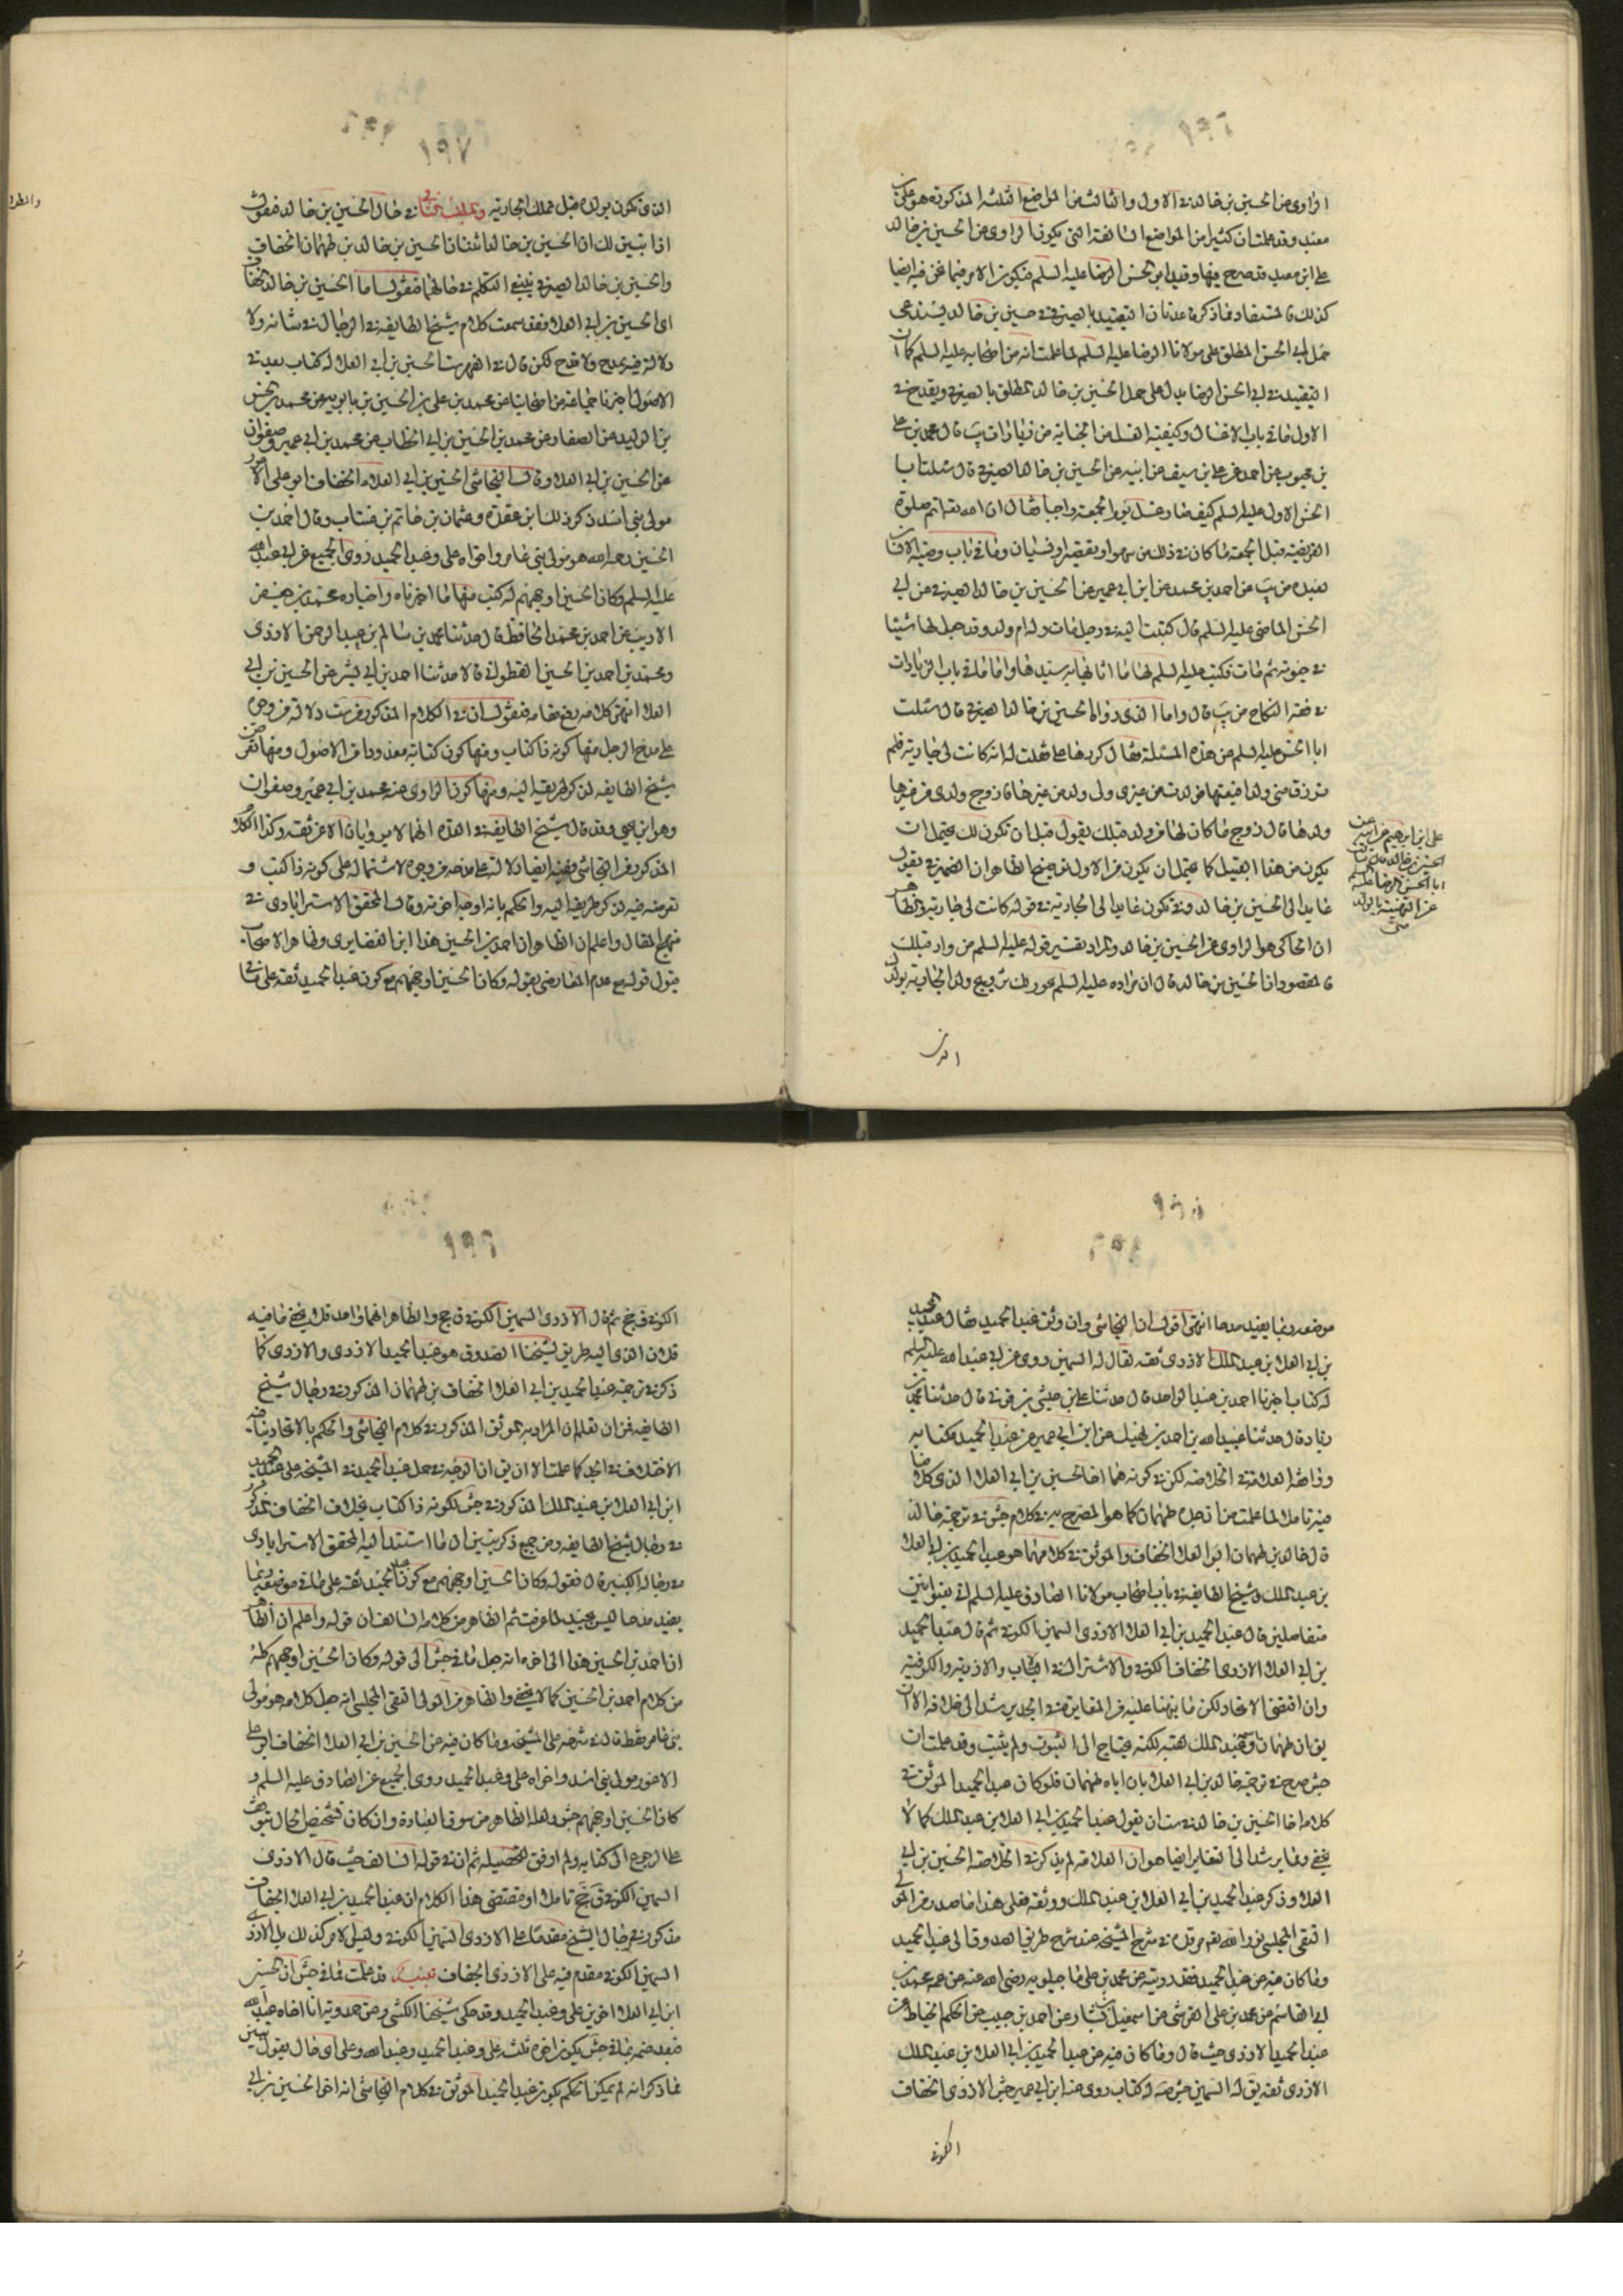 الراوى عن الحسين بن خالد فى الاول والثالث من المواضع الثلثة المذكورة هو على بن
معبد وقد علمت ان كثيرا من المواضع السالفة التى يكون الراوى عن الحسين بن خالد
على بن معبد قد صرح فيها وقيد ابى الحسن الرضا عليه السلم فيكون الامر فيما نحن فيه ايضا
كذلك فالمستفاد مما ذكرنا عدنان التقييد بالصيرفى فى حسين بن خالد يستدعى
حمل ابى الحسن المطلق على مولانا الرضا عليه السلم لما علمت انه من اصحابه عليه السلم كما ان
التقييد فى ابى الحسن الرضا يدل على حمل الحسين بن خالد المطلق بالصيرفى ويقدح فى
الاول ما فى باب الاغسال وكيفية الغسل من الجنابة من زيادات يب قال محمد بن على
بن محبوب عن احمد عن على بن سيف عن ابيه عن الحسين بن خالد الصيرفى قال سئلت ابا
الحسن الاول عليه السلم كيف صار غسل يوم الجمعة واجبا فقال ان الله تعالى اتم صلوة
الفريضة قبل الجمعة ما كان فى ذلك من سهو او تقصير او نسيان وما فى باب وصية الانسان
لعبده من يب عن احمد بن محمد عن ابن ابى عمير عن الحسين بن خالد الصيرفى عن ابى
الحسن الماضى عليه السلم قال كتبت اليه فى رجل مات وله ام ولد وقد جعل لها شيئا
فى حيوته ثم مات فكتب عليه السلم لها ما اثابها به سيدها واما ما فى باب الزيادات
فى فقه النكاح من يب قال واما الذى رواه الحسين بن خالد الصيرفى قال سئلت
ابا الحسن عليه السلم عن هذه المسئلة فقال كررها على قلت له انه كانت لى جارية فلم
ترزق منى ولدا فبعتها فولدت من غيرى ولى ولد من غيرها فازوج ولدى من غيرها
ولدها قال زوج ما كان لها من ولد قبلك يقول قبل ان تكون لك فيحتمل ان
يكون من هذا القبيل كما يحتمل ان يكون من الاول فى الظاهر ان الضمير فى يقول
عايد الى الحسين بن خالد وفى تكون عايد الى الجارية فى قوله كانت لى جارية والظاهر
ان الحاكى هو الراوى عن الحسين بن خالد والمراد تفسير قوله عليه السلم من ولد قبلك
فالمقصود ان الحسين بن خالد قال ان مراده عليه السلم جواز تزويج ولد الجارية بولدك
الذى
على بن ابرهيم عن ابيه عن
الحسين بن خالد قال سئلت
ابا الحسن الرضا عليه السلم
عن التهنية بالولد
متى
١٩٧
الذى تكون بولده قبل تملك الجارية والمطلب الثانى فى حال الحسين بن خالد فنقول
اذا تبين لك ان الحسين بن خالد اثنان الحسين بن خالد بن طهمان الخفاف
والحسين بن خالد الصيرفى ينبغى التكلم فى حالهما فنقول اما الحسين بن خالد الخفاف
اى الحسين بن ابى العلاء فقد سمعت كلام شيخ الطايفة فى الرجال فى شانه ولا
دلالة فيه بمدح ولا قدح لكن قال فى الفهرست الحسين بن ابى العلاء له كتاب يعد فى
الاصول اخبرنا جماعة من اصحابنا عن محمد بن على بن الحسين بن بابويه عن محمد بن الحسن
بن الوليد عن الصفار عن محمد بن الحسين بن ابى الخطاب عن محمد بن ابى عمير وصفوان
عن الحسين بن ابى العلاء وقال النجاشى الحسين بن ابى العلاء الخفاف ابو على الاعور
مولى بنى اسد ذكر ذلك ابن عقدة وعثمان بن حاتم بن منتاب وقال احمد بن
الحسين رحمه الله هو مولى بنى عامر واخواه على وعبد الحميد روى الجميع عن ابى عبد الله
عليه السلم وكان الحسين اوجههم له كتب منها ما اخبرناه واجازه محمد بن جعفر
الاديب عن احمد بن محمد الحافظ قال حدثنا محمد بن سالم بن عبد الرحمن الازدى
ومحمد بن احمد بن الحسين القطوانى قالا حدثنا احمد بن ابى بشر عن الحسين بن ابى
العلاء انتهى كلامه رفع مقامه فنقول ان فى الكلام المذكور من ست دلالة من وجوه
على مدح الرجل منها كونه ذا كتاب ومنها كون كتابه معدودا من الاصول ومنها تعرض
شيخ الطايفة لذكر طريقه اليه ومنها كون الراوى عنه محمد بن ابى عمير وصفوان
وهو ابن يحيى وقد قال شيخ الطايفة فى العدة انهما لا يرويان الا عن ثقة وكذا الكلام
المذكور من النجاشى وفيه ايضا دلالة على مدحه من وجوه لاشتماله على كونه ذا كتب و
تعرضه فيه لذكر طريقه اليه والحكم بانه اوجه اخوته وقال المحقق الاسترابادى فى
منهج المقال واعلم ان الظاهر ان احمد بن الحسين هذا ابن الغضايرى وظاهر الاصحاب
قبول قوله مع عدم المعارض بقوله وكان الحسين اوجههم مع كون عبد الحميد ثقة على ما فى
موضعه ربما يفيد مدحا انتهى اقول ان النجاشى وان وثق عبد الحميد فقال عبد الحميد
بن ابى العلاء بن عبد الملك الازدى ثقة يقال له السمين روى عن ابى عبد الله عليه السلم
له كتاب اخبرنا احمد بن عبد الواحد قال حدثنا على بن حبشى بن قونى قال حدثنا حميد بن
زياد قال حدثنا عبيد الله بن احمد بن نهيك عن ابن ابى عمير عن عبد الحميد بكتابه
وافقه العلامة فى الخلاصة لكن فى كونه هما اخا الحسين بن ابى العلاء الذى كلامنا
فيه تامل لما علمت من ان جده طهمان كما هو المصرح به فى كلام جش فى ترجمة خالد
قال خالد بن طهمان ابو العلاء الخفاف والموثق فى كلامهما هو عبد الحميد بن ابى العلاء
بن عبد الملك وشيخ الطايفة فى باب اصحاب مولانا الصادق عليه السلم اتى بعنوانين
متفاصلين قال عبد الحميد بن ابى العلاء الازدى السمين الكوفى ثم قال عبد الحميد
بن ابى العلاء الازدى الخفاف الكوفى والاشتراك فى الباب والازدية والكوفية
وان اقتضى الاتحاد لكن ما نبهنا عليه من المغايرة فى الجد يرشد الى خلافه الا ان
يق ان طهمان وعبد الملك لقبه لكنه يحتاج الى الثبوت ولم يثبت وقد علمت ان
جش صرح فى ترجمة خالد بن ابى العلاء بان اباه طهمان فلو كان عبد الحميد الموثق فى
كلامه اخا الحسين بن خالد فى ست ان يقول عبد الحميد بن ابى العلاء بن عبد الملك كما لا
يخفى ومما يرشد الى التغاير ايضا هو ان العلامة لم يذكر فى الخلاصة الحسين بن ابى
العلاء وذكر عبد الحميد بن ابى العلاء بن عبد الملك ووثقه فعلى هذا ما صدر من المولى
التقى المجلسى نور الله تعالى مرقده فى شرح المشيخة عند شرح طريق الصدوق الى عبد الحميد
وما كان فيه عن عبد الحميد فقد رويته عن محمد بن على ماجيلويه رضى الله عنه عن عمه محمد بن
ابى القاسم عن محمد بن على القرشى عن اسمعيل بن بشار عن احمد بن حبيب عن الحكم الخياط عن
عبد الحميد الازدى حيث قال وما كان فيه عن عبد الحميد بن ابى العلاء بن عبد الملك
الازدى ثقة يق له السمين جش صه له كتاب روى عنه ابن ابى عمير جش الازدى الخفاف
الكوفى
١٩٩
الكوفى ق جخ ثم قال الازدى السمين الكوفى ق جخ والظاهر انهما واحد قلت لا يخفى ما فيه
قلت ان الذى اليه طريق شيخنا الصدوق هو عبد الحميد الازدى والازدى كما
ذكر فى ترجمة عبد الحميد بن ابى العلاء الخفاف بن طهمان المذكور فى رجال شيخ
الطايفة فمن ان تعلم ان المراد به الموثق المذكور فى كلام النجاشى والحكم بالاتحاد ينافيه
الاختلاف فى الجد كما علمت الا ان يق ان الوجه فى حمل عبد الحميد فى المشيخة على عبد الحميد
ابن ابى العلاء بن عبد الملك المذكور فى جش لكونه ذا كتاب بخلاف الخفاف المذكور
فى رجال شيخ الطايفة ومن جميع ذكر تبين ان ما استند اليه المحقق الاسترابادى
فى رجاله الكبير قال فقوله وكان الحسين اوجههم مع كون عبد الحميد ثقة على ما فى موضعه ربما
يفيد مدحا ليس بجيد لما عرفت ثم الظاهر من كلامه السالف ان قوله واعلم ان الظاهر
ان احمد بن الحسين هذا الى اخره انه حمل ما فى جش الى قوله وكان الحسين اوجههم كله
من كلام احمد بن الحسين كما لا يخفى والظاهر من المولى التقى المجلسى انه جعل كلامه هو مولى
بنى عامر فقط قال فى شرحه على المشيخة وما كان فيه عن الحسين بن ابى العلاء الخفاف ابو على
الاعور مولى بنى اسد واخواه على وعبد الحميد روى الجميع عن الصادق عليه السلم و
كان الحسين اوجههم جش ولعله الظاهر من سوق العبارة وان كان تشخيص الحال يتوقف
على الرجوع الى كتابه ولم اوفق لتحصيله ثم ان فى قوله السالف حيث قال الازدى
السمين الكوفى ق جخ تاملا اذ مقتضى هذا الكلام ان عبد الحميد بن ابى العلاء الخفاف
مذكور فى رجال الشيخ مقدما على الازدى السمين الكوفى وليس الامر كذلك بل الازدى
السمين الكوفى مقدم فيه على الازدى الخفاف تنبيه قد علمت مما فى جش ان للحسين
ابن ابى العلاء اخوين على وعبد الحميد وقد حكى شيخنا الكشى عن حمدويه ان اخاه عبد الله
فبعد ضمه بما فى جش يكون اخوه ثلثة على وعبد الحميد وعبد الله وعلى اى حال يقول تبين
مما ذكر انه لم يمكن الحكم بكون عبد الحميد الموثق فى كلام النجاشى انه اخو الحسين بن ابى